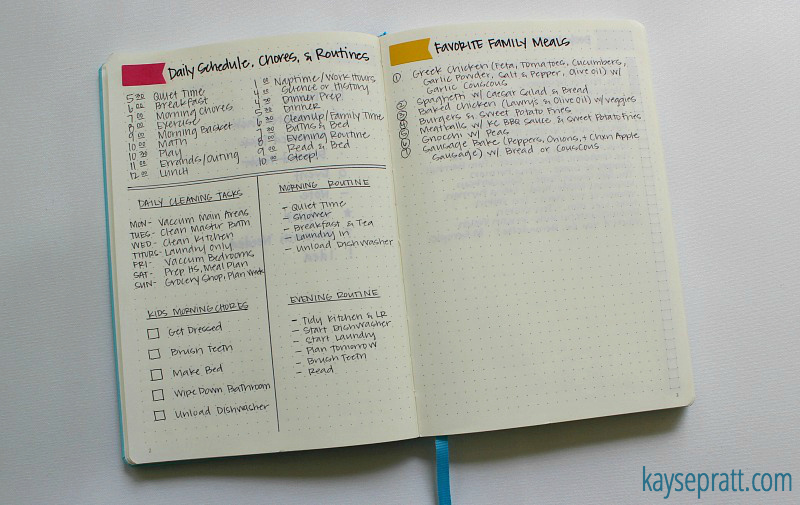 Daily Schedule, Chores, & Routines
5 30 Quiet Time
6 00 Breakfast
7 00 Morning Chores
8 00 Exercise
9 00 Morning Basket
10 00 Math
10 30 Play
11 00 Errands/Outing
12 00 Lunch
1 00 Naptime/Work Hours
4 00 Science or History
4 30 Dinner Prep
5 00 Dinner
6 00 Cleanup/Family Time
7 00 Baths & Bed
8 00 Evening Routine
9 00 Read & Bed
10 00 Sleep!
Daily Cleaning Tasks
Mon- Vaccum Main Areas
Tues- Clean Master Bath
Wed- Clean Kitchen
Thurs- Laundry Only
Fri- Vaccum Bedrooms
Sat- Prep HS, Meal Plan
Sun- Grocery Shop, Plan Week
Morning Routine
- Quiet Time
- Shower
- Breakfast & Tea
- Laundry In
- Unload Dishwasher
Kids Morning Chores
Get Dressed
Brush Teeth
Make Bed
Wipe Down Bathroom
Unload Dishwasher
Evening Routine
- Tidy Kitchen & LR
- Start Dishwasher
- Start Laundry
- Plan Tomorrow
- Brush Teeth
- Read
2
Favorite Family Meals
1 Greek Chicken (Feta, Tomatoes, Cucumbers,
Garlic Powder, Salt & Pepper, Olive Oil) w/
Garlic Couscous
2 Spaghetti w/ Caesar Salad & Bread
3 Baked Chicken (Lawry's & Olive Oil) w/ veggies
4 Burgers & Sweet Potato Fries
5 Meatballs w/ KC BBQ Sauce & Sweet Potato Fries
6 Gnocchi w/ Peas
7 Sausage Bake (Peppers, Onions, + Chkn Apple
Sausage) w/ Bread or Couscous
3
kaysepratt.com